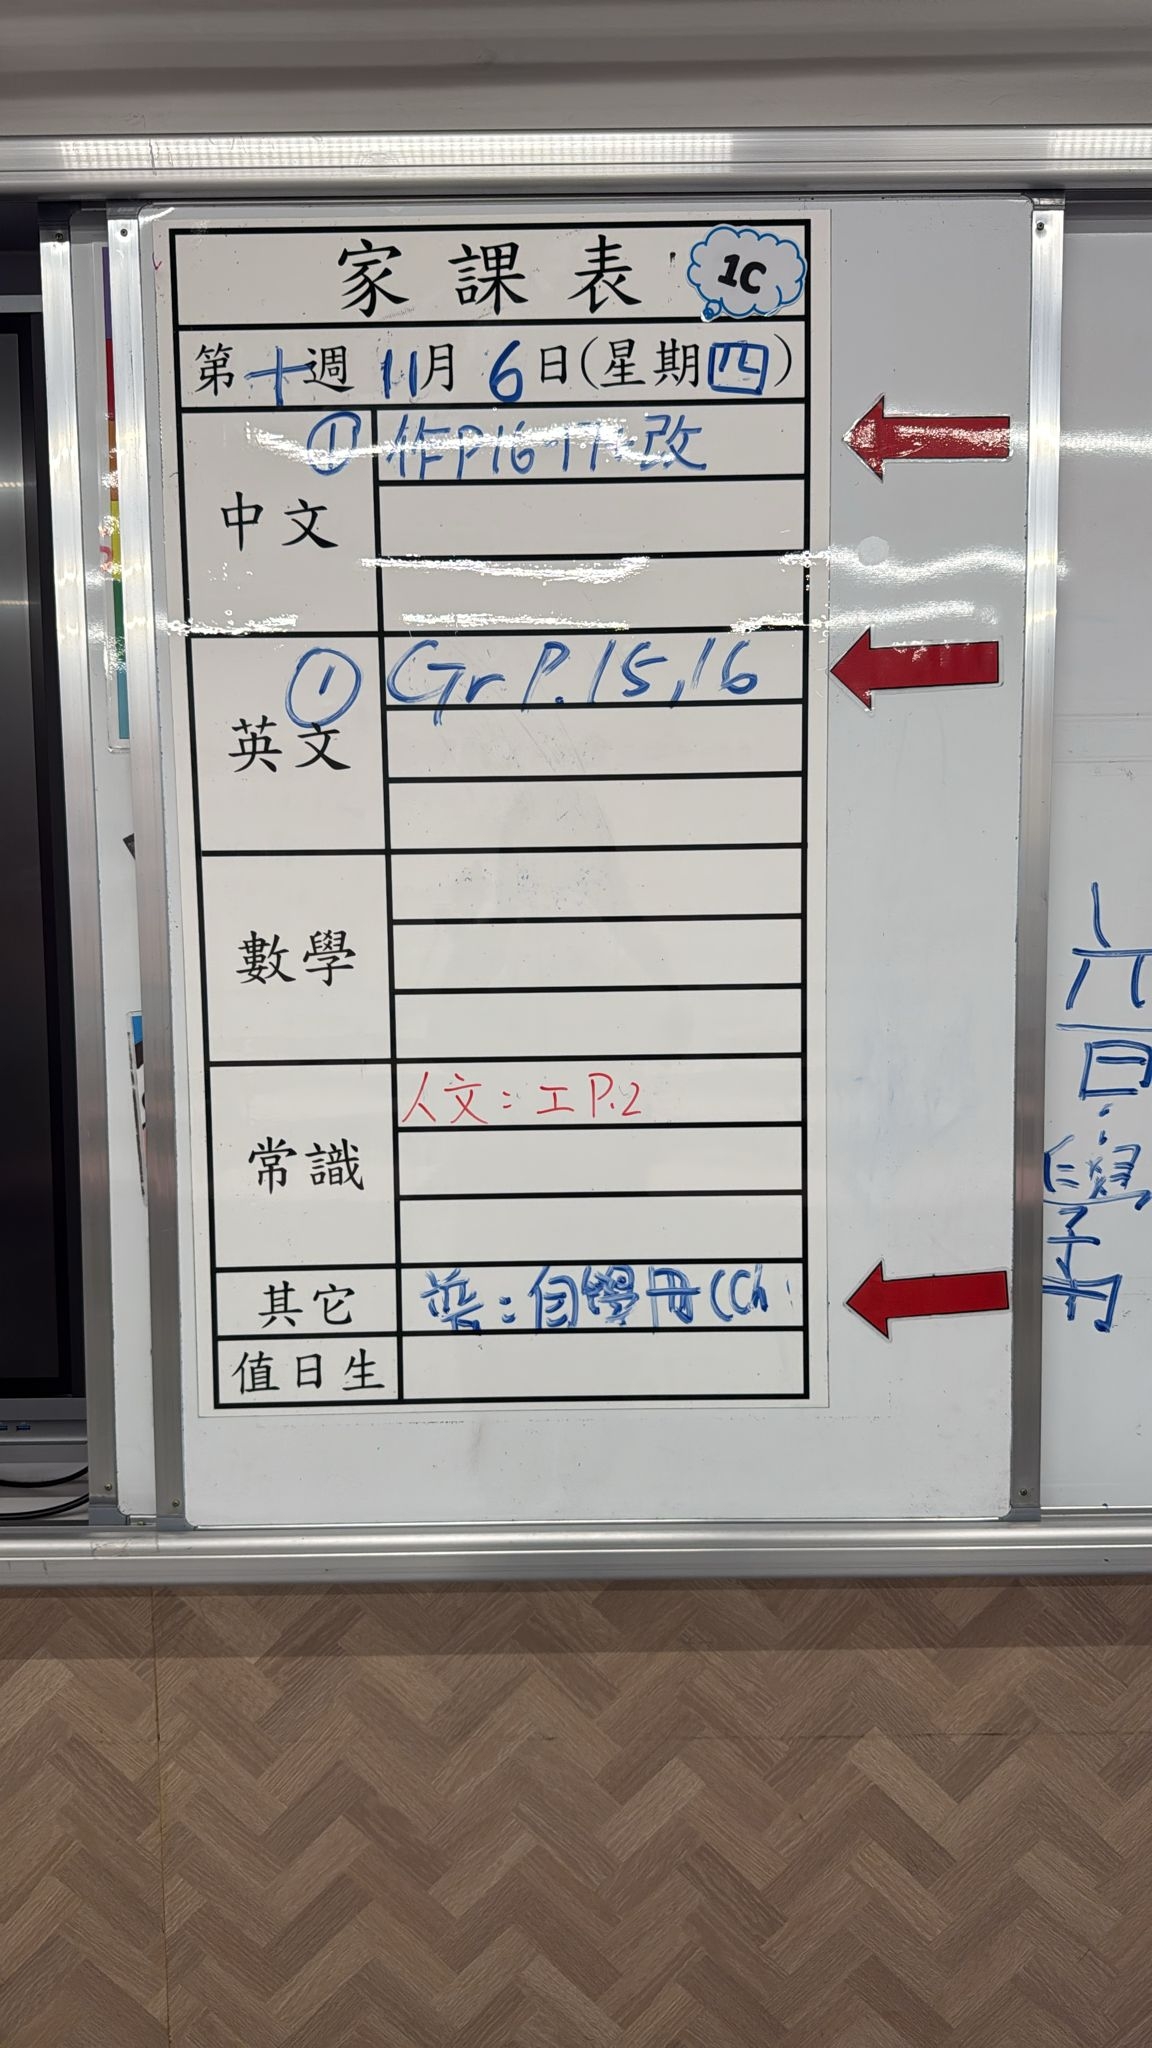 家課表
1C
第十週 11月6日(星期四)
中文
① 作P16-17:改
英文
① Gr P.15,16
數學
常識
人文：工P.2
其它
：自學冊(Ch
值日生
六
日